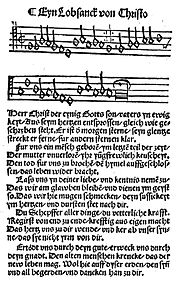 Eyn Lobsanck von Christo
Herr Christ der eynig Gotts son / vaters yn ewig
keyt / Aus seym hertzen entsprossen / gleich wie ge-
schrieben steht. Er ist d morgen sterne / seyn glentze
streckt er ferne fur andern sternen klar.
Fur uns ein mēsch geborn / ym letzē teil der zeyt /
Der mutter
Den tod fur uns zu brochē / dē hymel auffgeschlos-
sen / das leben wider bracht.
Lass uns yn deiner liebe / und kentnis nemē zu /
Das wir am glawben bleibē / und dienen ym geyst
so / Das wir hie mugen schmecken / deyn sussickeyt
ym hertzen / und dursten stet nach dir.
Du Schepffer aller dinge / du vetterliche krafft.
Regirst von end zu ende / krefftig aus eigen macht
Das hertz uns zu dir wende / und ker ab unser syn-
ne / das sye nicht yrrn von dir.
Ertödt uns durch deyn gute / erweck uns durch
deyn gnad. Den alten menschen krencke / das der
new leben mag. Wol hie auff dyser erden / den syn
und all begerden / und dancken han zu dir.